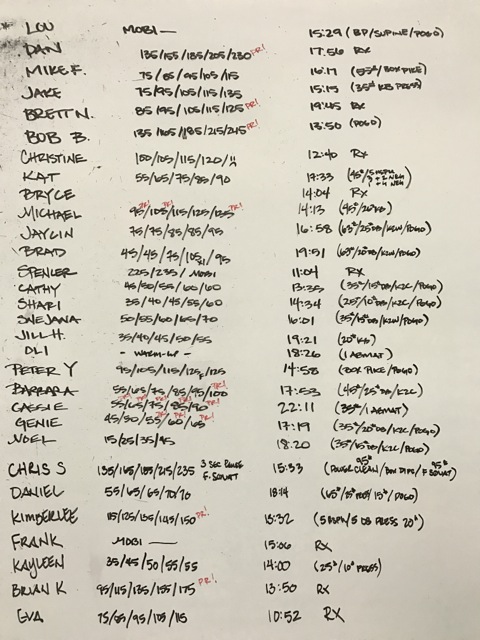 LOU MOBI — 15:29 (BP/SUPINE/POGO)
DAN 135/155/185/205/230 PR! 17:56 RX
MIKE F. 75/85/95/105/115 16:17 (55#/BOX PIKE)
JAKE 75/95/105/115/135 15:15 (35# KB PRESS)
BRETT N. 85/95/105/115/125 PR! 19:45 RX
BOB B. 135/165/185/215/245 PR! 13:50 (POGO)
CHRISTINE 100/105/115/120/ 12:40 RX
KAT 55/65/75/85/90 19:33 (45#/5 HSPU
BRYCE 14:04 RX
MICHAEL 95/105/115/125/135 PR! 14:13 (95#/20#DB)
JAYLIN 75/75/85/85/95 16:58 (65#/25#DB/K2W/POGO)
BRAD 45/45/75/105/95 19:51 (65#/20#DB/K2W/POGO)
SPENCER 225/235/ MOBI 11:04 RX
CATHY 45/50/55/60/60 13:35 (35#/15#DB/K2C/POGO)
SHARI 35/40/45/55/60 14:34 (25#/10#DB/K2C/POGO)
SNEJANA 50/55/60/65/70 16:01 (35#/15#DB/K2W/POGO)
JILL H. 35/40/45/50/55 19:21 (20#KB)
OLI - WARM-UP - 18:26 (1 ABMAT)
PETER Y 95/105/115/125/125 14:58 (BOX PIKE/POGO)
BARBARA 55/65/75/85/95/100 PR! 17:53 (45#/25#DB/K2C)
CASSIE 55/65/75/85/90 PR! 22:11 (35#/1 ABMAT)
GENIE 45/50/55/60/65 PR! 17:19 (35#/20#DB/K2C/POGO)
NOEL 15/25/35/45 18:20 (35#/15#DB/K2C/POGO)
CHRIS S 135/165/185/215/235 3 SEC PAUSE F. SQUAT 15:33 (POWER CLEAN/BAR DIPS/F SQUAT) 95# 95#
DANIEL 55/65/65/70/70 18:14 (65#/15#/POGO)
KIMBERLEE 115/125/135/145/150 PR! 15:32 (5 HSPU/5 DB PRESS 20#)
FRANK MOBI — 15:06 RX
KAYLEEN 35/45/50/55/55 14:00 (25#/10# PRESS)
BRIAN K 95/115/135/155/175 PR! 13:50 RX
EVA 75/85/95/105/115 10:52 RX